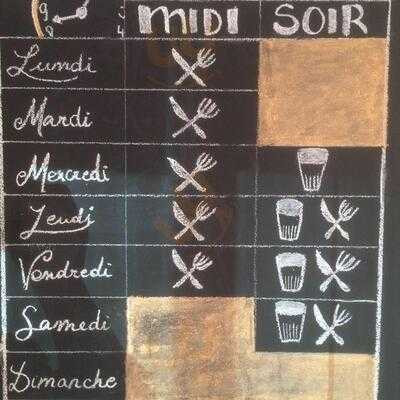 MIDI SOIR
Lundi
Mardi
Mercredi
Jeudi
Vendredi
Samedi
Dimanche